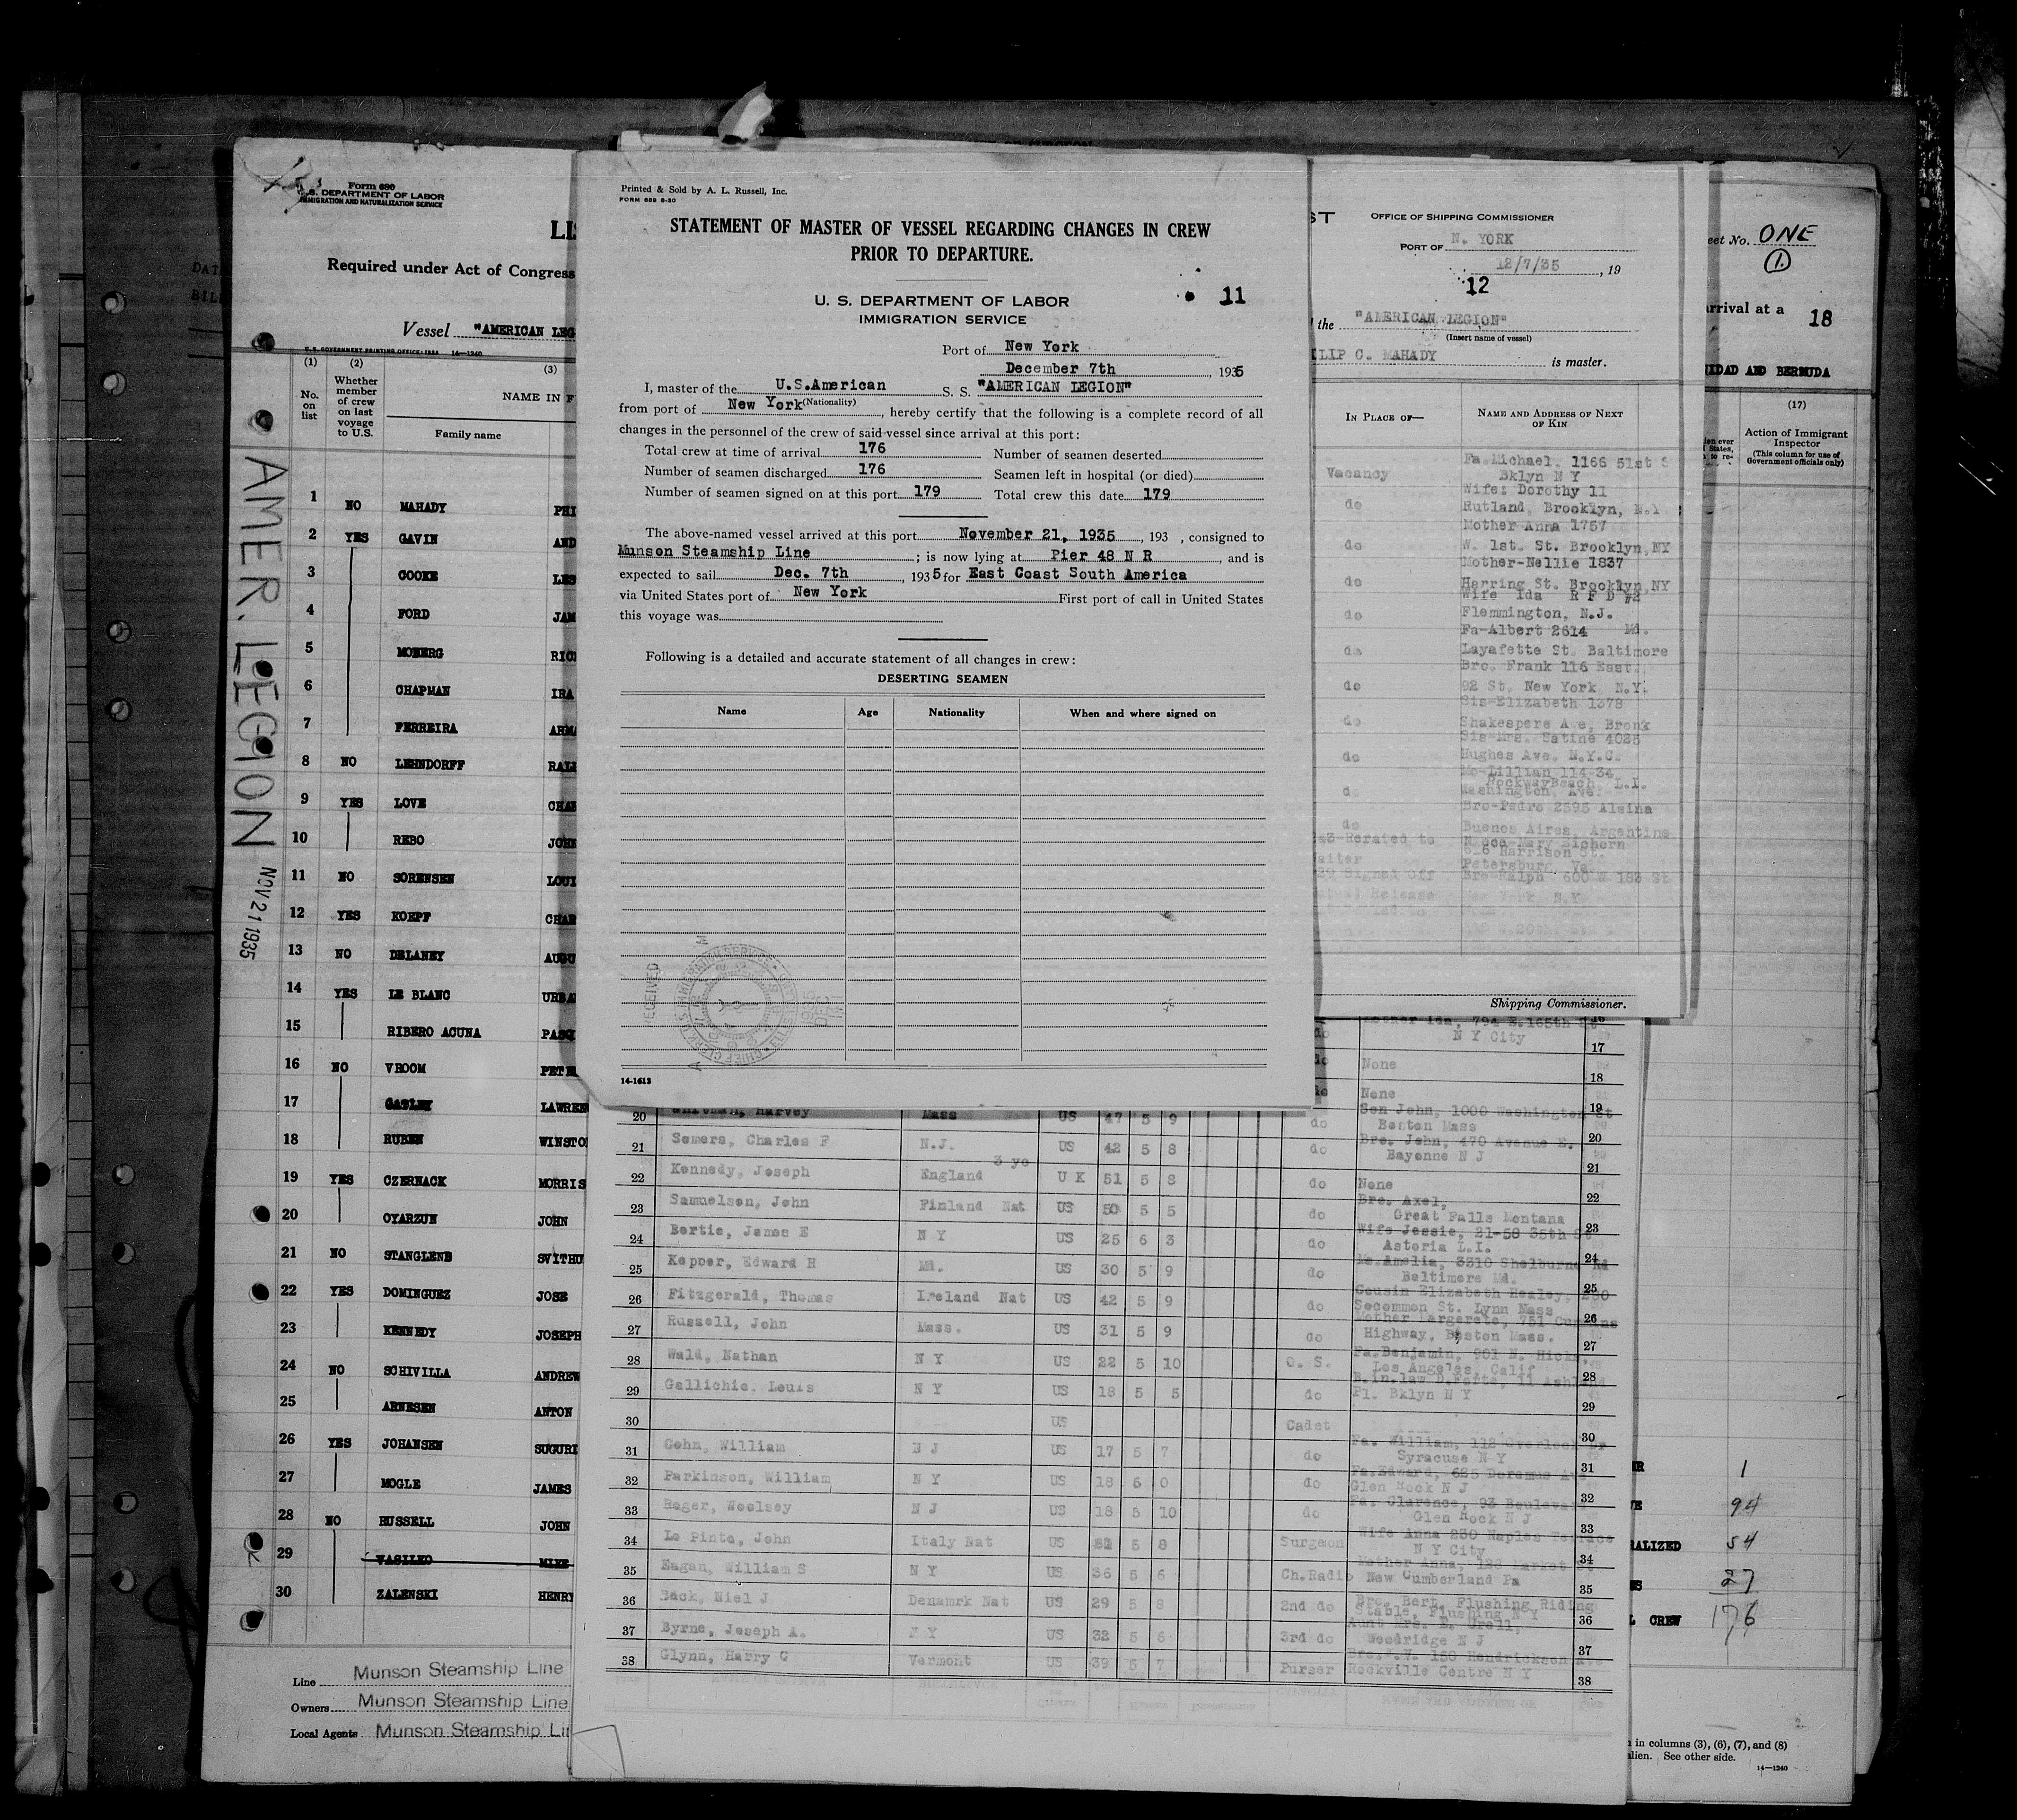 Form 680
U. S. DEPARTMENT OF LABOR
IMMIGRATION AND NATURALIZATION SERVICE
Required under Act of Congress
Vessel "AMERICAN LEG
U. S. GOVERNMENT PRINTING OFFICE: 1934 14—1240
(1) (2) (3)
No. on list
Whether member of crew on last voyage to U.S.
NAME IN F
Family name
1 NO MAHADY PHI
2 YES GAVIN AND
3 COOKE LES
4 FORD JAM
5 MOBERG RIC
6 CHAPMAN IRA
7 FERREIRA ARMA
8 NO LEHNDORFF RAL
9 YES LOVE CHAR
10 REBO JOHN
11 NO SORENSEN LOUI
12 YES KOEPF CHAR
13 NO DELANEY AUGU
14 YES LE BLANC URBA
15 RIBERO ACUNA PASQ
16 NO VROOM PETE
17 GATLEY LAWREN
18 RUBEN WINSTO
19 YES CZERNACK MORRIS
20 OYARZUN JOHN
21 NO STANGLEND SVITHU
22 YES DOMINGUEZ JOSE
23 KENNEDY JOSEPH
24 NO SCHIVILLA ANDREW
25 ARNESEN ANTON
26 YES JOHANSEN SUGURI
27 MOGLE JAMES
28 NO RUSSELL JOHN
29 VASILKO MIKE
30 ZALENSKI HENRY
Line Munson Steamship Line
Owners Munson Steamship Line
Local Agents Munson Steamship Li
AMER. LEGION
NOV 21 1935
Printed & Sold by A. L. Russell, Inc.
FORM 689 8-30
STATEMENT OF MASTER OF VESSEL REGARDING CHANGES IN CREW
PRIOR TO DEPARTURE.
U. S. DEPARTMENT OF LABOR
IMMIGRATION SERVICE
11
Port of New York
December 7th, 1935
I, master of the U.S.American S. S. "AMERICAN LEGION"
(Nationality)
from port of New York, hereby certify that the following is a complete record of all
changes in the personnel of the crew of said vessel since arrival at this port:
Total crew at time of arrival 176 Number of seamen deserted
Number of seamen discharged 176 Seamen left in hospital (or died)
Number of seamen signed on at this port 179 Total crew this date 179
The above-named vessel arrived at this port November 21, 1935, 193 , consigned to
Munson Steamship Line; is now lying at Pier 48 N R, and is
expected to sail Dec. 7th, 1935 for East Coast South America
via United States port of New York First port of call in United States
this voyage was
Following is a detailed and accurate statement of all changes in crew:
DESERTING SEAMEN
Name Age Nationality When and where signed on
RECEIVED
14-1613
ST
OFFICE OF SHIPPING COMMISSIONER
PORT OF N. YORK
12/7/35, 19
12
the "AMERICAN LEGION"
(Insert name of vessel)
ILIP C. MAHADY is master.
IN PLACE OF—
NAME AND ADDRESS OF NEXT OF KIN
Vacancy Fa.Michael. 1166 51st S
Bklyn N Y
do Wife: Dorothy 11
Rutland, Brooklyn, N.Y
do Mother Anna 1757
W. 1st. St. Brooklyn,NY
do Mother-Nellie 1837
Harring St. Brooklyn,NY
do Wife Ida R F D #2
Flemmington, N.J.
do Fa-Albert 2614 Md.
Layafette St. Baltimore
do Bro. Frank 116 East
92 St. New York N.Y.
do Sis-Elizabeth 1378
Shakespere Ave, Bronk
do Sis-Mrs. Satine 4025
Hughes Ave. N.Y.C.
do Mo-Lillian 114 34
RockwayBeach L.I.
Washington, Ave.
do Bro-Pedro 2595 Alsina
Buenos Aires, Argentine
Rerated to
Mary Eichorn
Harrison St.
Petersburg, Va
29 Signed Off
Bro-Ralph 600 W 183 St
Release New York N.Y.
Shipping Commissioner.
Mother Ida, 794 E.165th St
do N Y City 17
None 18
None 19
20 Harvey Mass US 47 5 9 do Son John, 1000 Washington St
Boston Mass 20
21 Somers, Charles F N.J. US 42 5 8 do Bro. John, 470 Avenue E.
Bayonne N J 21
22 Kennedy, Joseph England 3 yo U K 51 5 8 do None 22
23 Samuelson, John Finland Nat US 50 5 5 do Bro. Axel,
Great Falls Montana 23
24 Bertie, James E N Y US 25 6 3 do Wife Jessie, 21-58 35th St
Astoria L.I. 24
25 Kepper, Edward H Md. US 30 5 9 do Mo.Amelia, 3310 Shelburne Rd
Baltimore Md. 25
26 Fitzgerald, Thomas Ireland Nat US 42 5 9 do Cousin Elizabeth Healey,
Secommon St. Lynn Mass 26
27 Russell, John Mass. US 31 5 9 do Mother Margarete, 751 Cummins
Highway, Boston Mass. 27
28 Wald, Nathan N Y US 22 5 10 O. S. Fa.Benjamin, 901 N. Hicks,
Los Angeles, Calif 28
29 Gallichie, Louis N Y US 18 5 5 do
Pl. Bklyn N Y 29
30 US Cadet 30
31 Cohn, William N J US 17 5 7 do Fa. William, 112 Overlook Dr
Syracuse N Y 31
32 Parkinson, William N Y US 18 6 0 do Fa.Edward, 625 Doremus Ave
Glen Rock N J 32
33 Rager, Woolsey N J US 18 5 10 do Fa. Clarence, 93 Boulevard
Glen Rock N J 33
34 Lo Pinto, John Italy Nat US 5 8 Surgeon Wife Anna 230 Naples Terrace
N Y City 34
35 Eagan, William S N Y US 36 5 6 Ch.Radio Mother Anna, 123 Market St
New Cumberland Pa 35
36 Back, Niel J Denamrk Nat US 29 5 8 2nd do Bro. Bert, Flushing Riding
Stable, Flushing N Y 36
37 Byrne, Joseph A. N Y US 32 5 6 3rd do Aunt Mrs. E. Urell,
Woodridge N J 37
38 Glynn, Harry C Vermont US 39 5 7 Purser Hendrickson Ave
Rockville Centre N Y 38
eet No. ONE
1.
arrival at a 18
IDAD AND BERMUDA
(17)
Action of Immigrant Inspector
(This column for use of Government officials only)
R 1
E 94
ALIZED 54
S 27
L CREW 176
in columns (3), (6), (7), and (8)
alien. See other side.
14—1240